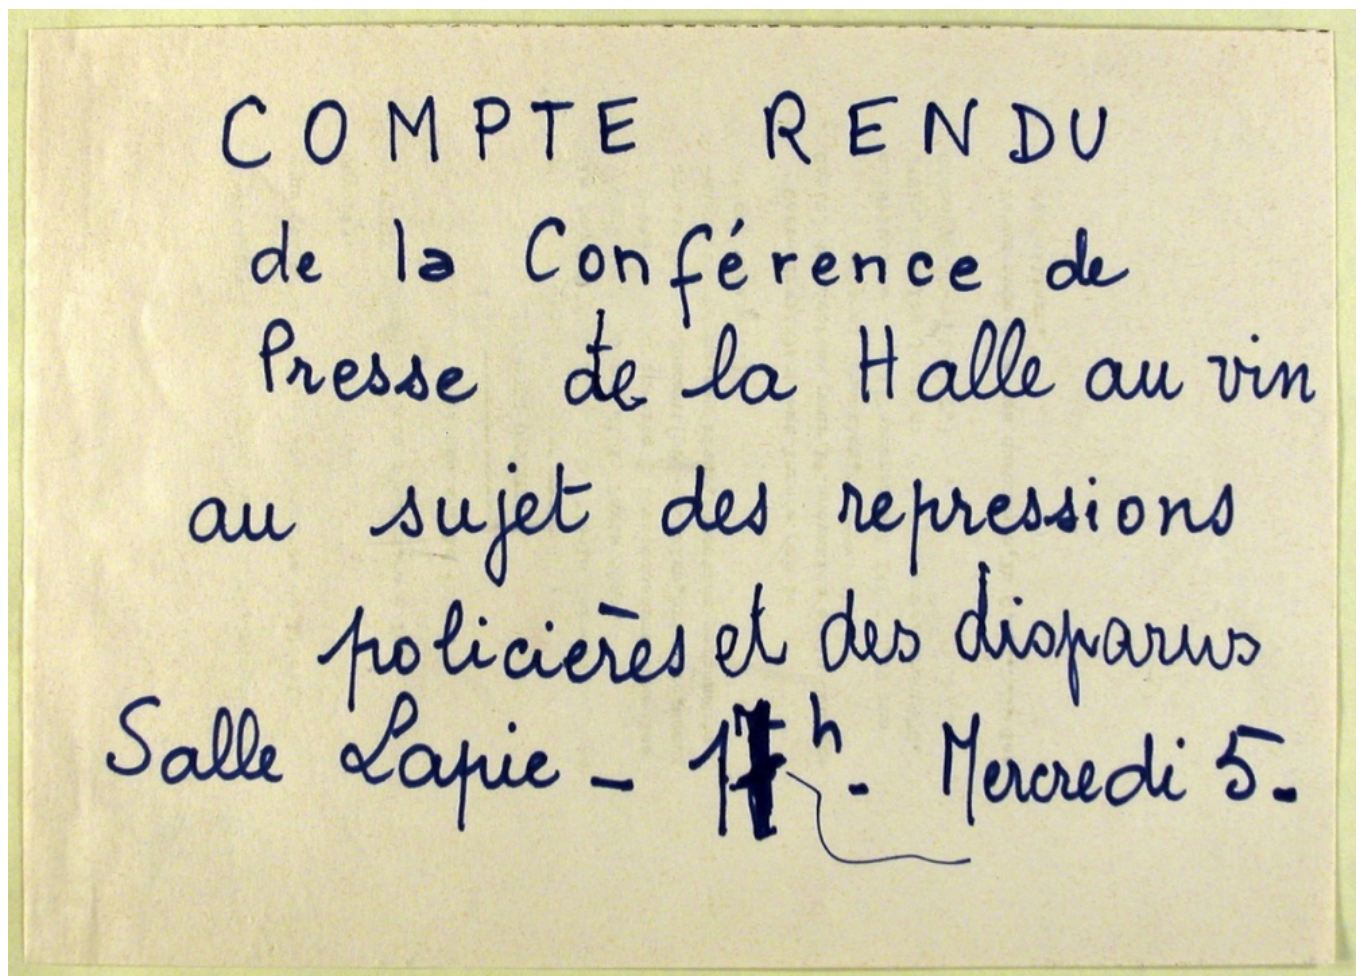 COMPTE RENDU
de la Conférence de
Presse de la Halle au vin
au sujet des repressions
policières et des disparus
Salle Lapie - 17h. Mercredi 5.